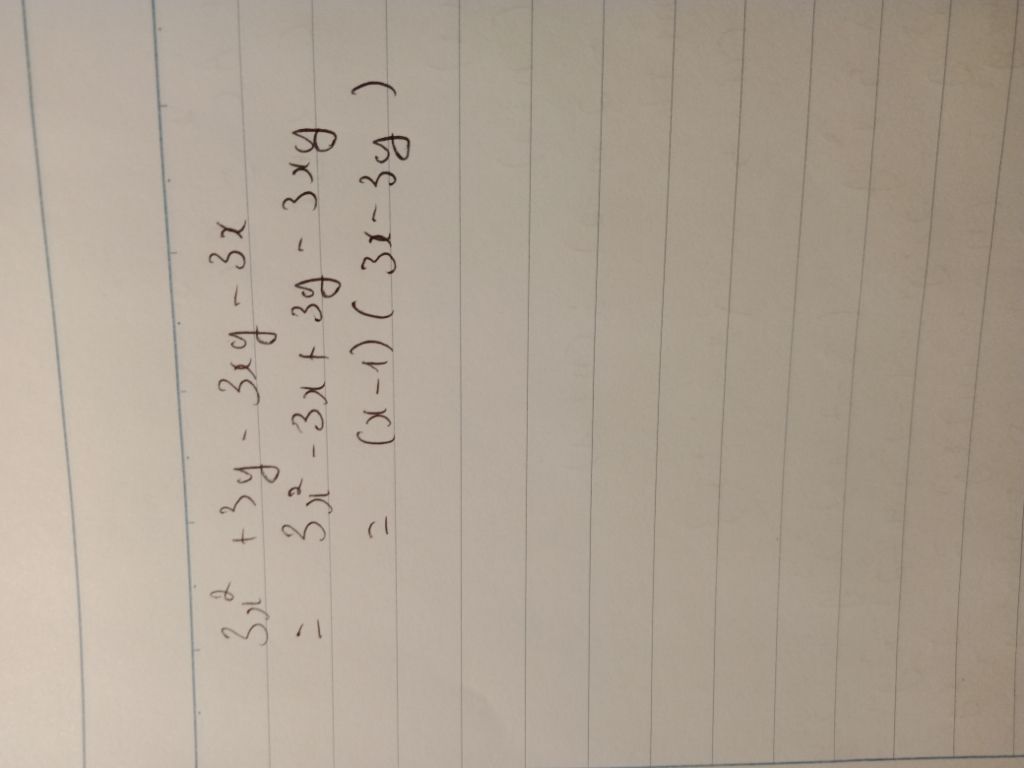 3x² + 3y - 3xy - 3x
= 3x² - 3x + 3y - 3xy
= (x-1)(3x-3y)